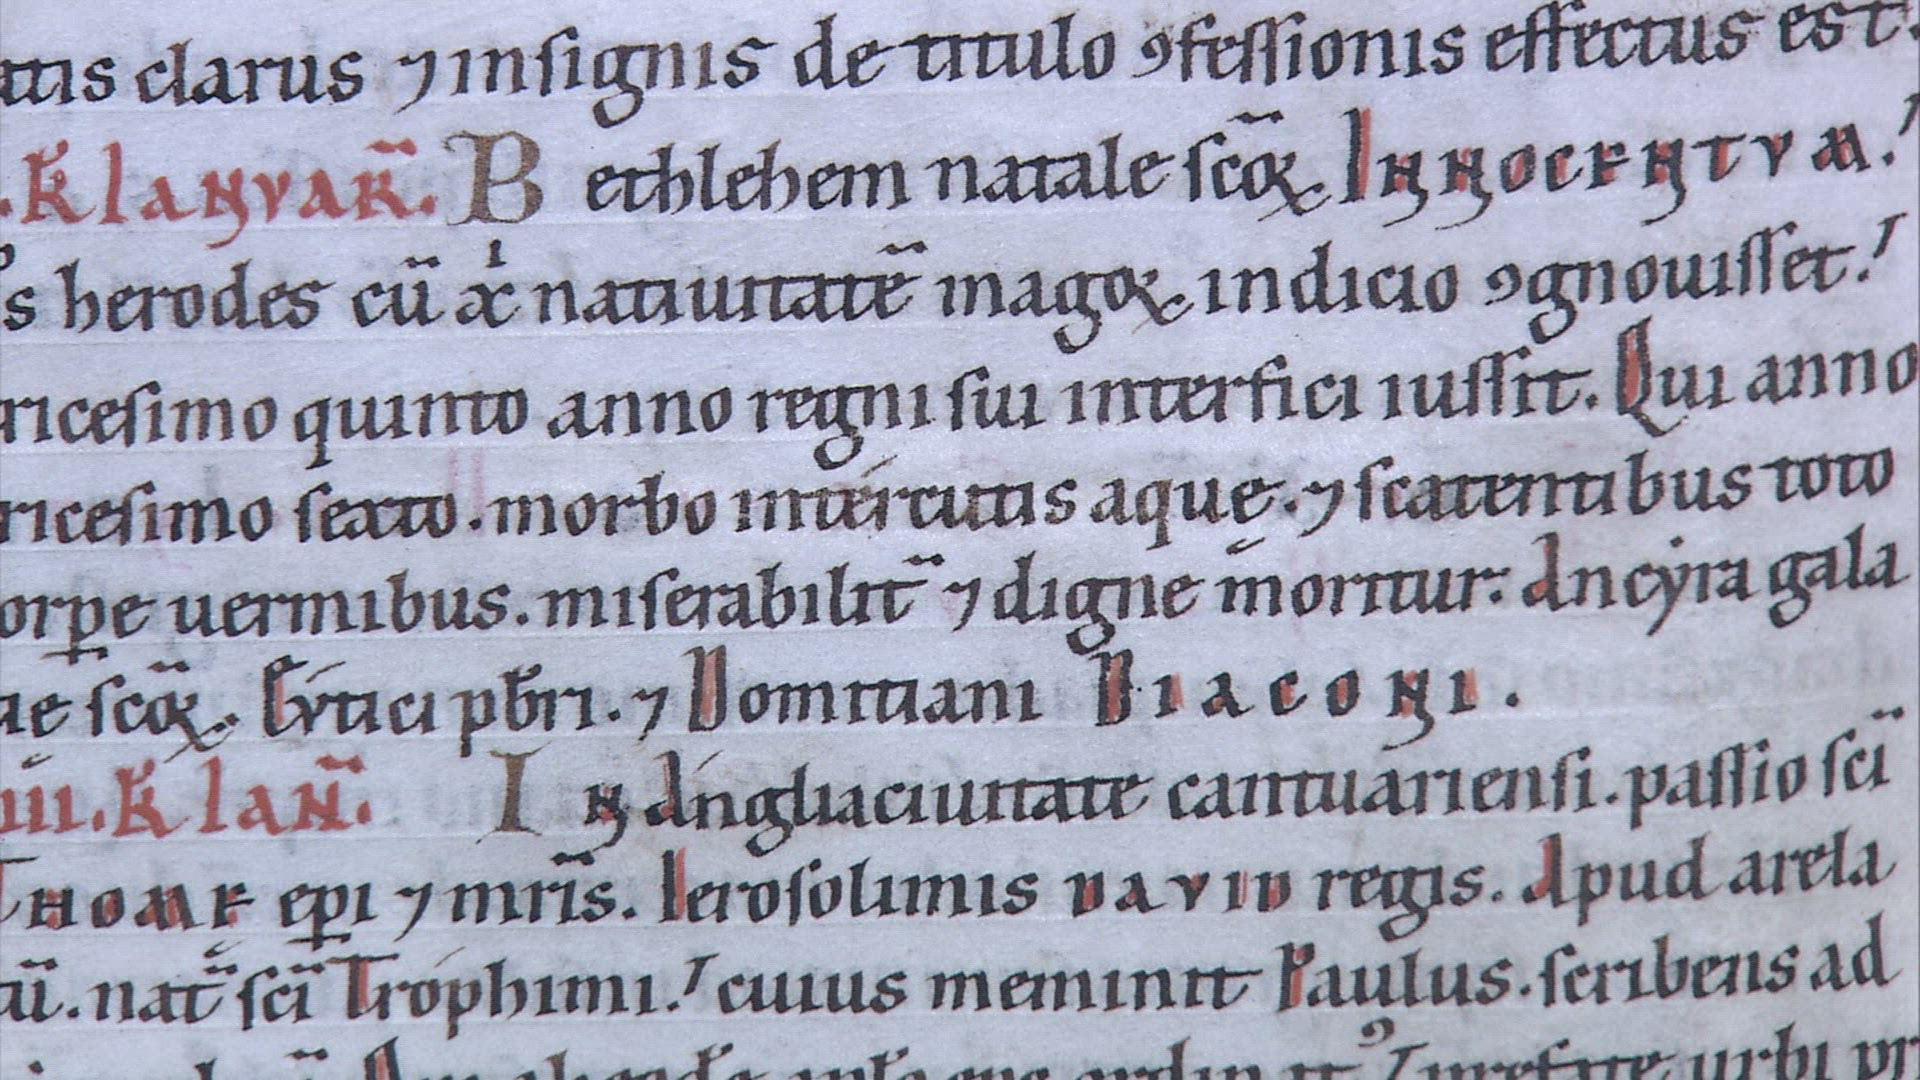 clarus ⁊ insignis de titulo ꝯfessionis effectus est.
.KL IANUAR̄. Bethlehem natale scōꝝ. INNOCENTUM.
herodes cū xp̄i natiuitatē magoꝝ indicio ꝯgnouisset.
ricesimo quinto anno regni sui interfici iussit. Qui anno
ricesimo sexto. morbo intercutis aquę. ⁊ scatentibus toto
orpe uermibus. miserabilit̄ ⁊ digne moritur. Ancyra gala
ae scōꝝ. Eutici pb̄ri. ⁊ Domitiani DIACONI.
iiii. KL IAN̄. IN Anglia ciuitate cantuariensi. passio sc̄i
THOMĘ ep̄i ⁊ mr̄is. Ierosolimis DAVID regis. Apud arela
ū. nat̄ sc̄i Trophimi. cuius meminit Paulus. scribens ad